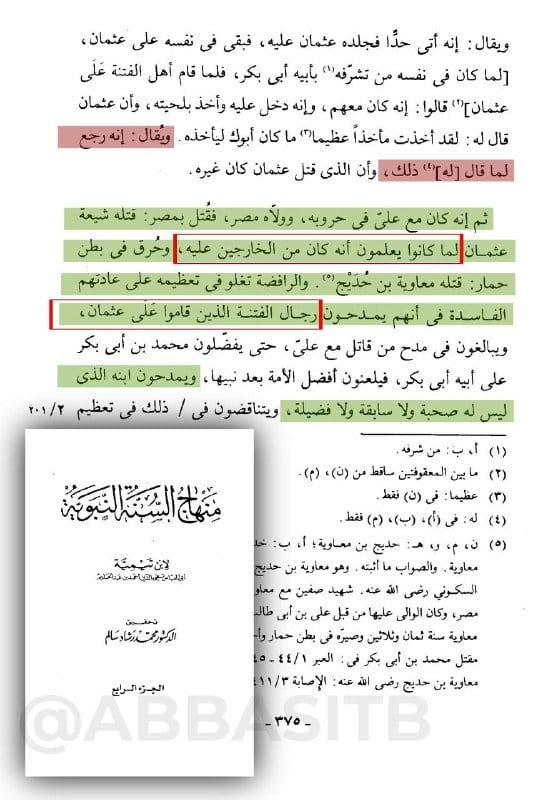 ويقال: إنه أتى حدًّا فجلده عثمان عليه، فبقى فى نفسه على عثمان،
[لما كان فى نفسه من تشرّفه(١) بأبيه أبى بكر، فلما قام أهل الفتنة عَلَى
عثمان](٢) قالوا: إنه كان معهم، وإنه دخل عليه وأخذ بلحيته، وأن عثمان
قال له: لقد أخذت مأخذاً عظيما(٣) ما كان أبوك ليأخذه. ويُقال: إنه رجع
لما قال [له](٤) ذلك، وأن الذى قتل عثمان كان غيره.
ثم إنه كان مع علىّ فى حروبه، وولاّه مصر، فقُتل بمصر: قتله شيعة
عثمان لما كانوا يعلمون أنه كان من الخارجين عليه، وحُرق فى بطن
حمار: قتله معاوية بن حُدَيْج(٥). والرافضة تغلو فى تعظيمه على عادتهم
الفاسدة فى أنهم يمدحون رجال الفتنة الذين قاموا عَلَى عثمان،
ويبالغون فى مدح من قاتل مع علىّ، حتى يفضّلون محمد بن أبى بكر
على أبيه أبى بكر، فيلعنون أفضل الأمة بعد نبيها، ويمدحون ابنه الذى
ليس له صحبة ولا سابقة ولا فضيلة، ويتناقضون فى / ذلك فى تعظيم ٢٠١/٢
(١) أ، ب: من شرفه.
(٢) ما بين المعقوفتين ساقط من (ن)، (م).
(٣) عظيما: فى (ن) فقط.
(٤) له: فى (أ)، (ب)، (م) فقط.
(٥) ن، م، و، هـ: حديج بن معاوية؛ أ، ب: خد
معاوية. والصواب ما أثبته. وهو معاوية بن حديج
السكونى رضى الله عنه. شهد صفين مع معاو
مصر، وكان الوالى عليها من قبل على بن أبى طالب
معاوية سنة ثمان وثلاثين وصيّره فى بطن حمار وأح
مقتل محمد بن أبى بكر فى: العبر ٤٤/١-٤٥
معاوية بن حديج رضى الله عنه: الإصابة ٤١١/٣
- ٣٧٥ -
منهاج السنة النبوية
لابن تيمية
تحقيق
الدكتور محمد رشاد سالم
الجزء الرابع
@ABBASITB